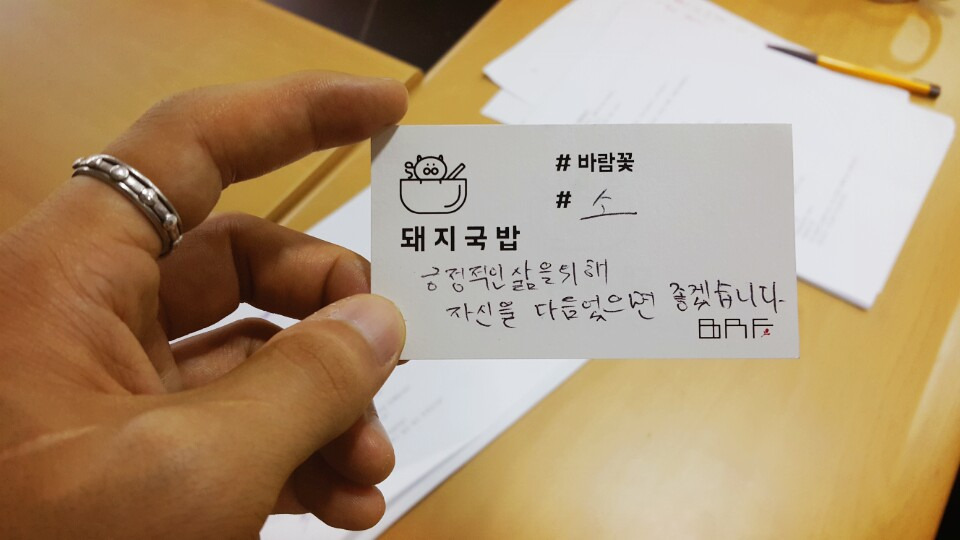 # 바람꽃
# 소
돼지국밥
긍정적인 삶을 위해
자신을 다듬었으면 좋겠습니다.
BAF